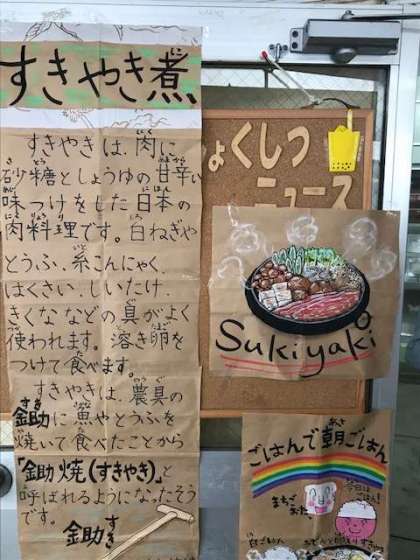 すきやき煮
すきやきは、肉に
砂糖としょうゆの甘辛い
味つけをした日本の
肉料理です。白ねぎや
とうふ、糸こんにゃく、
はくさい、しいたけ、
きくな などの具がよく
使われます。溶き卵を
つけて食べます。
すきやきは、農具の
鋤に魚やとうふを
焼いて食べたことから
「鋤焼(すきやき)」と
呼ばれるようになったそう
です。
鋤
すき
くしつ
ニュース
Sukiyaki
ごはんで朝ごはん